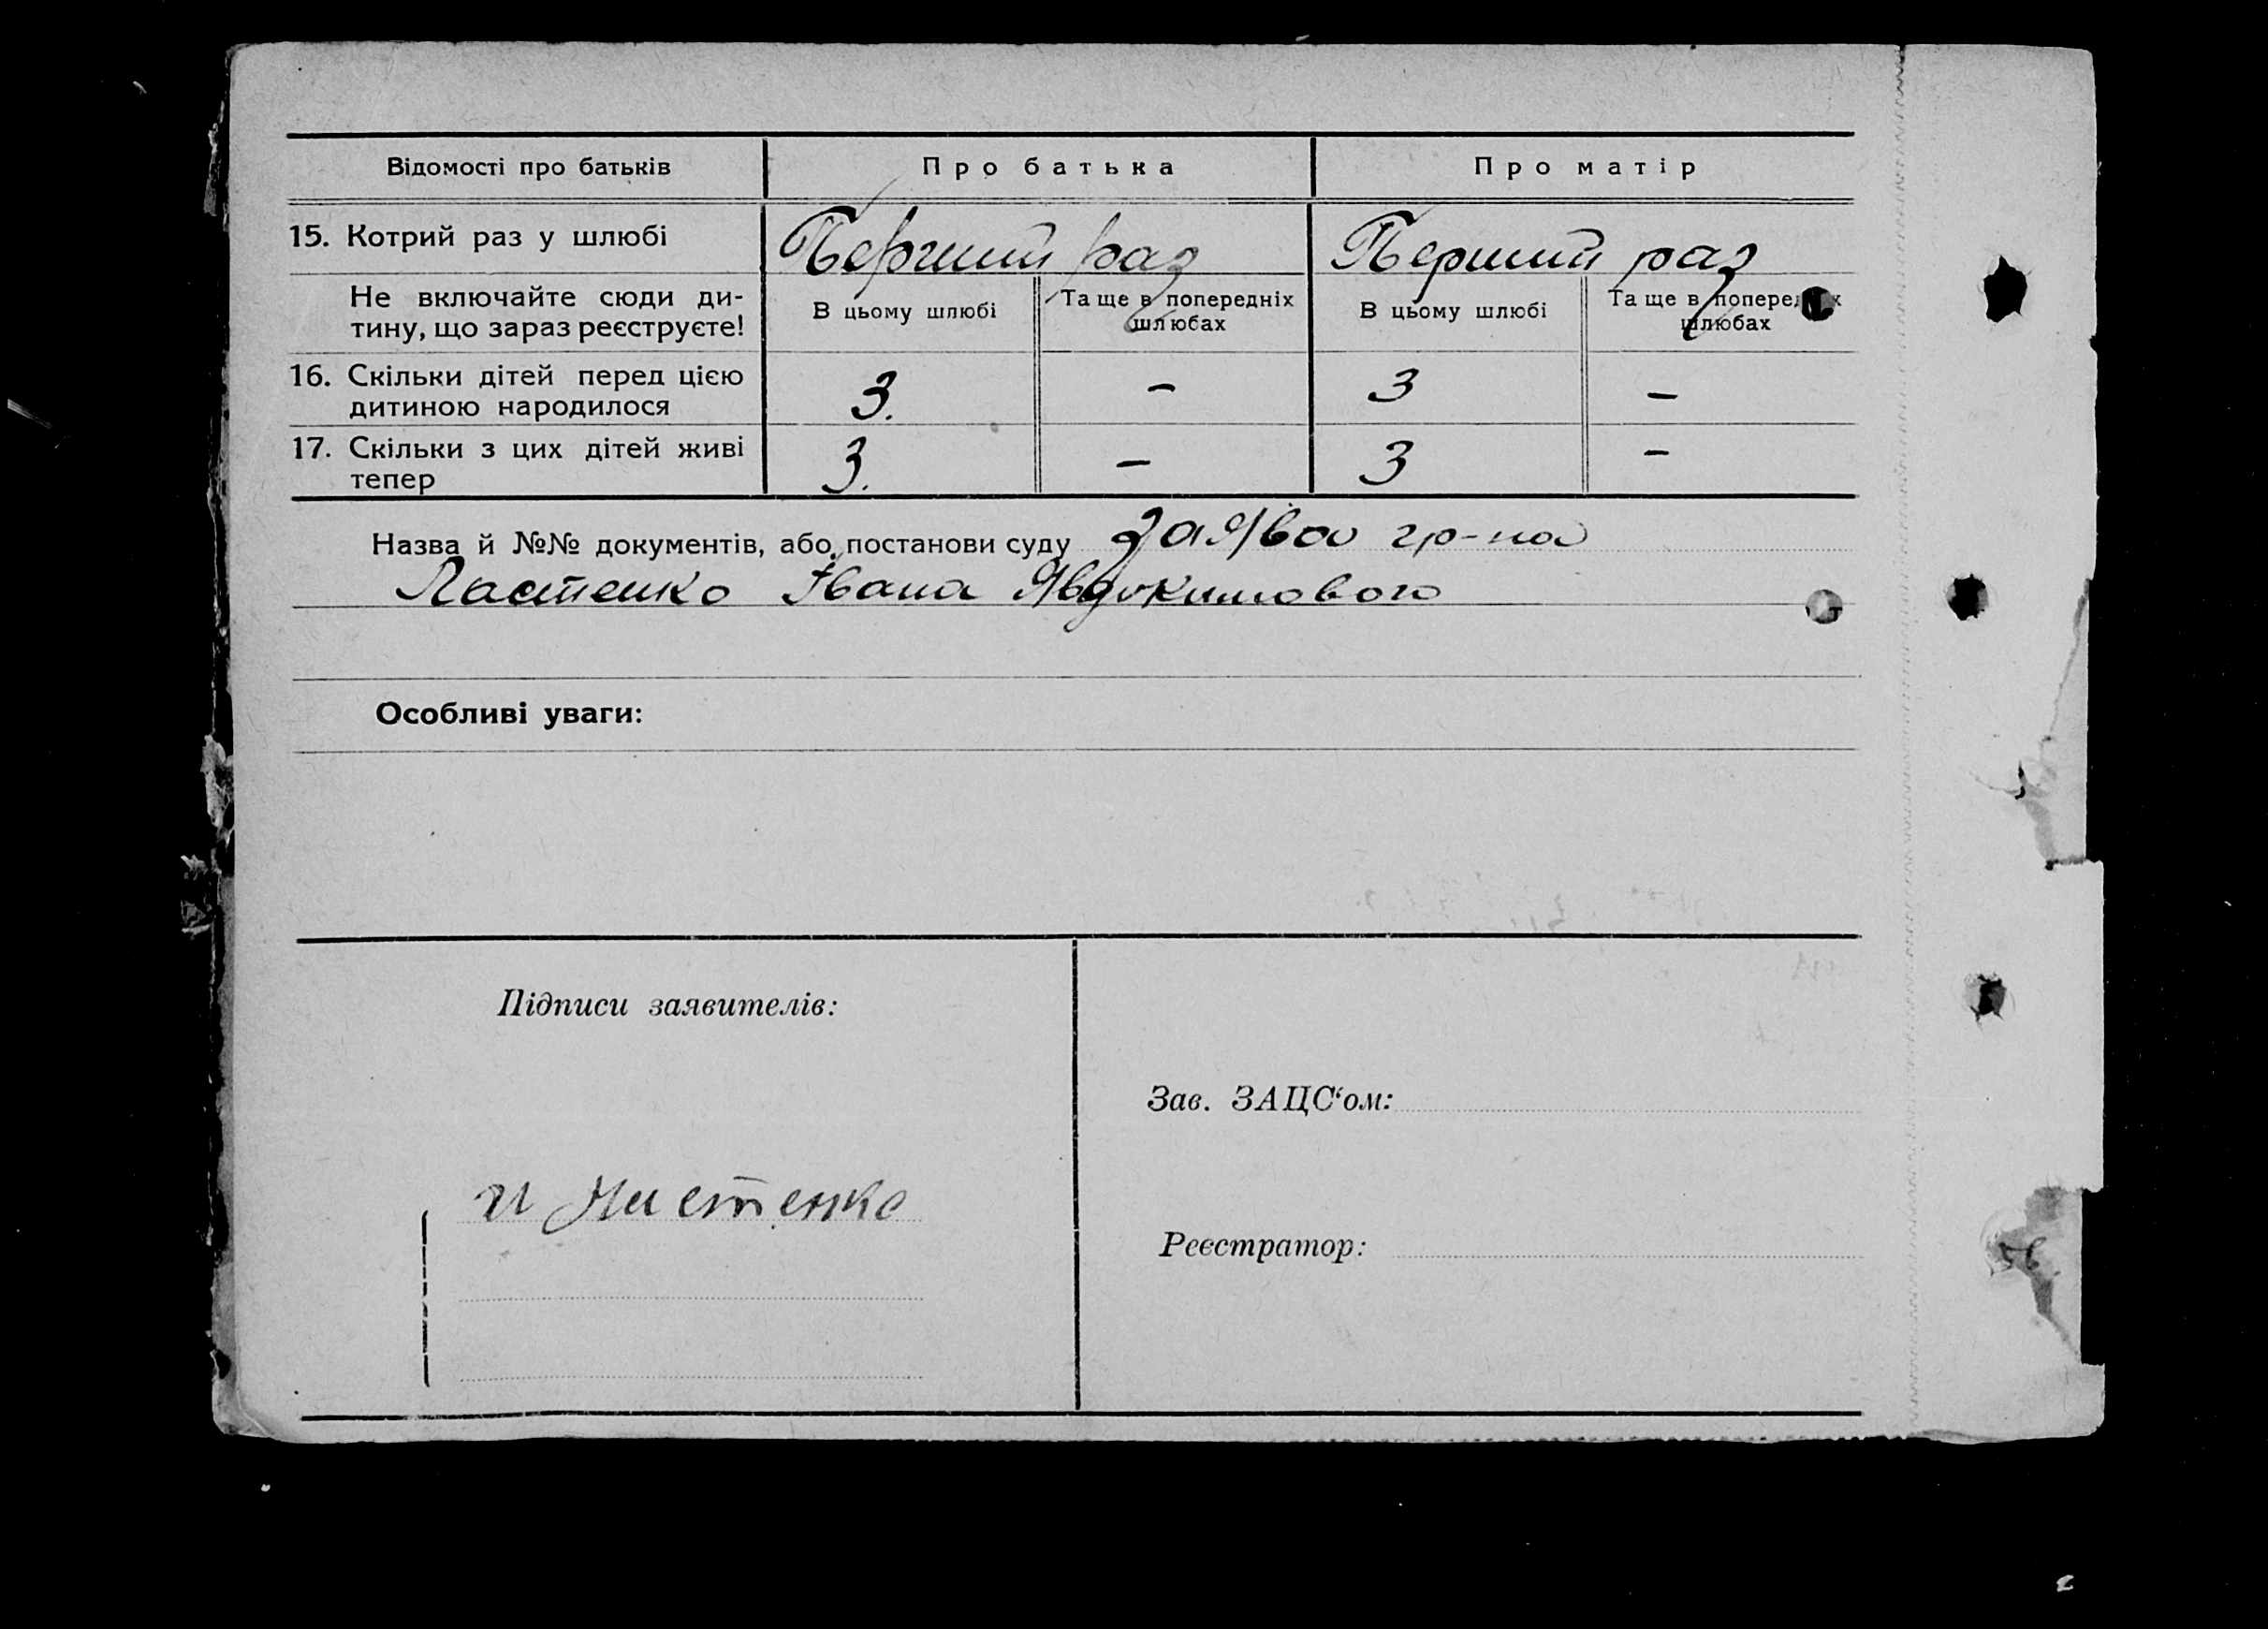 Відомості про батьків
Про батька
Про матір
15. Котрий раз у шлюбі
Перший раз
Перший раз
Не включайте сюди ди-
тину, що зараз реєструєте!
В цьому шлюбі
Та ще в попередніх
шлюбах
В цьому шлюбі
Та ще в попередніх
шлюбах
16. Скільки дітей перед цією
дитиною народилося
3.
–
3
–
17. Скільки з цих дітей живі
тепер
3.
–
3
–
Назва й №№ документів, або постанови суду заява гр-на
Ластенко Івана Явдокимового
Особливі уваги:
Підписи заявителів:
Зав. ЗАЦС‘ом:
Реєстратор: